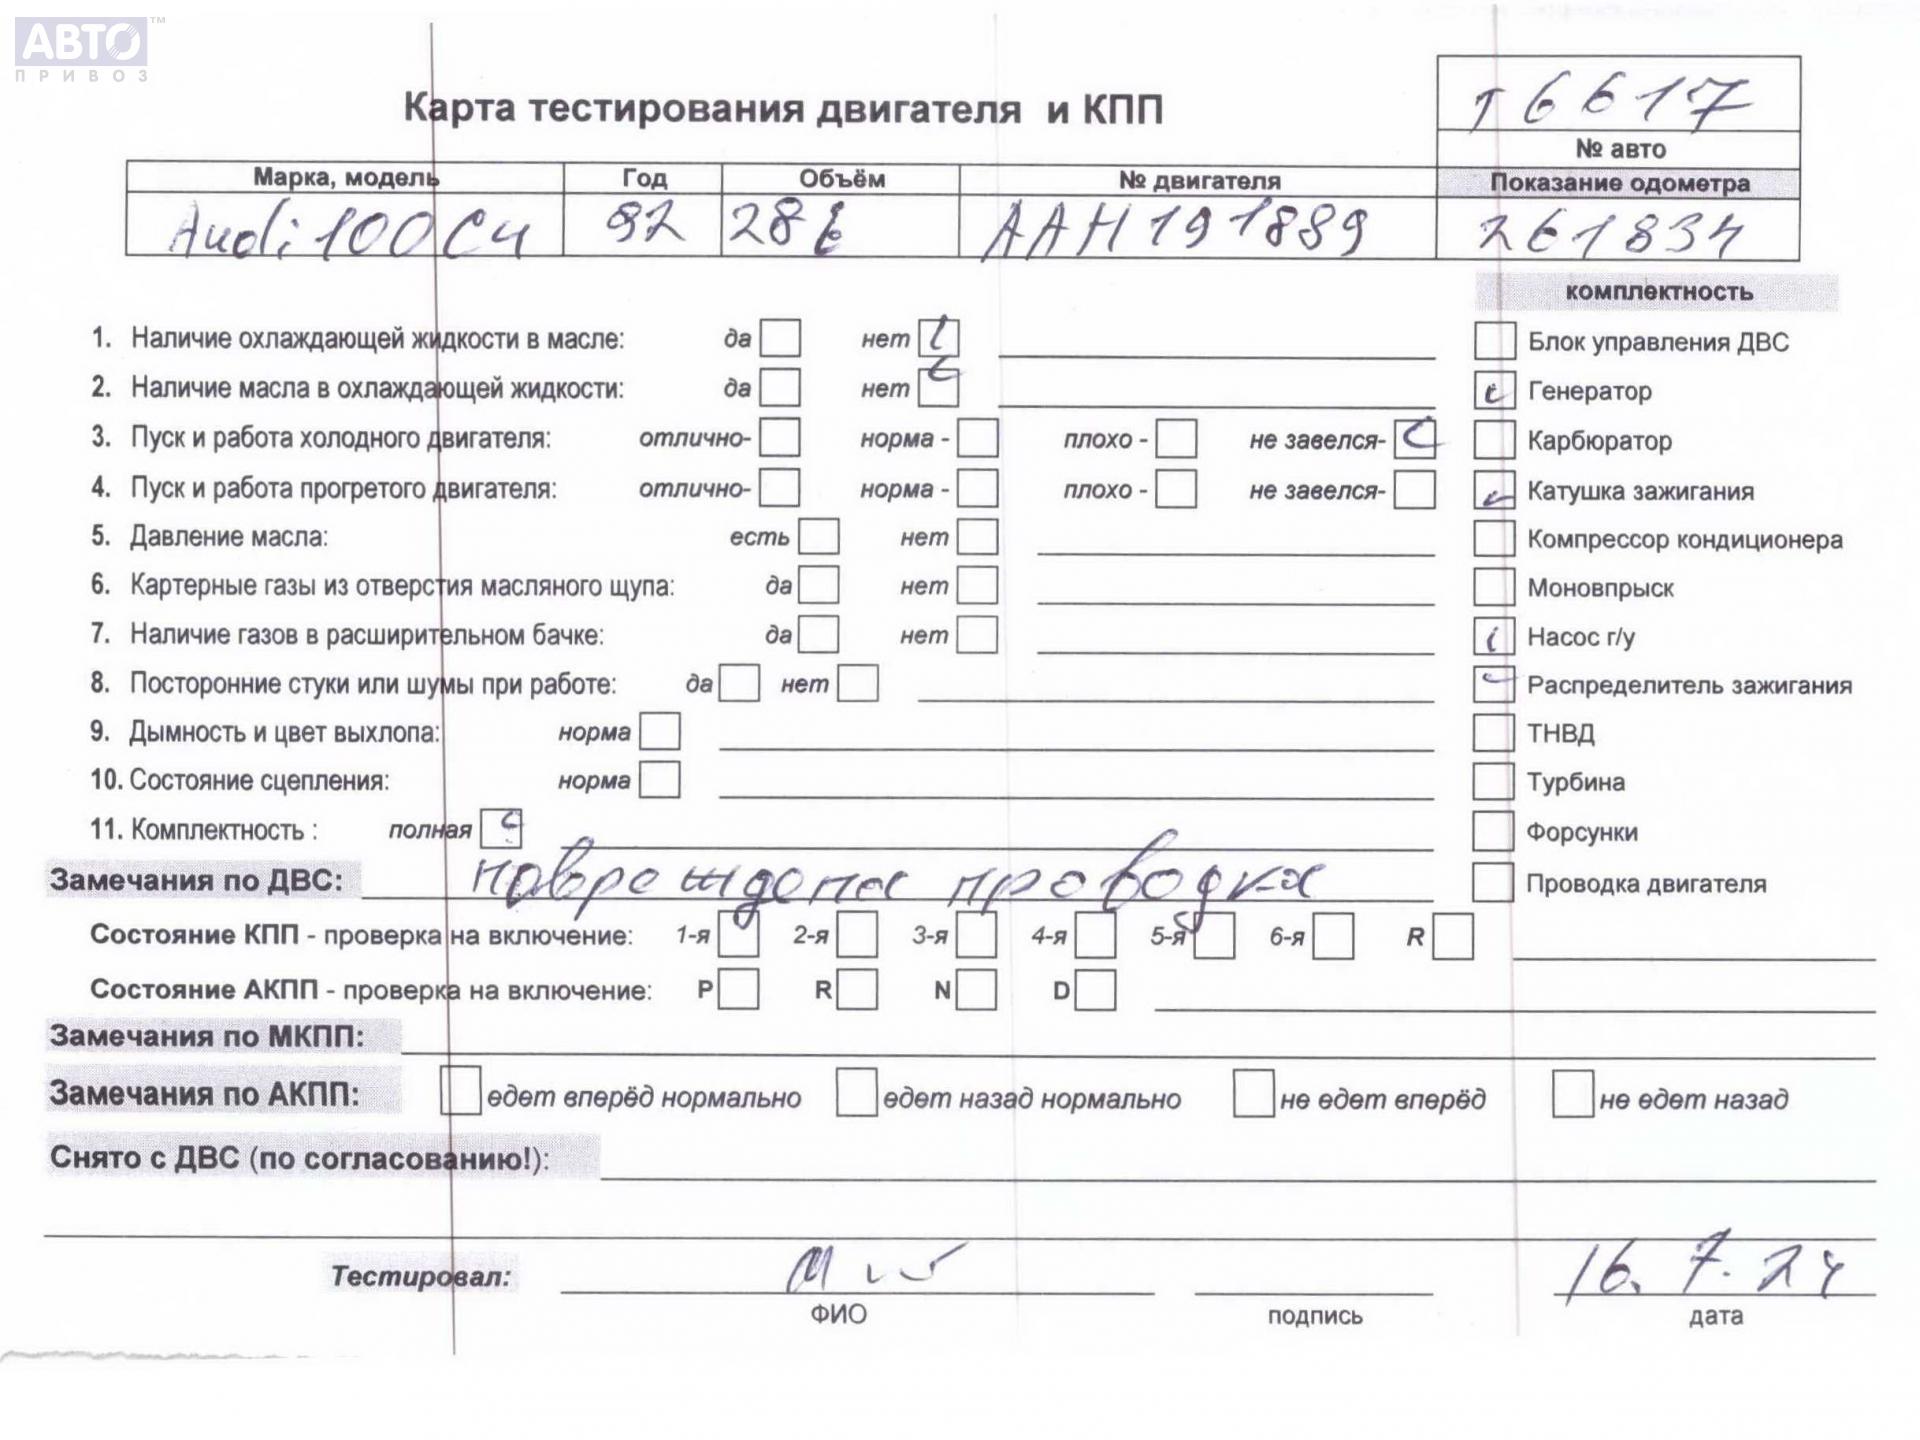 АВТО™
ПРИВОЗ
Карта тестирования двигателя и КПП
т6617
№ авто
Марка, модель Год Объём № двигателя Показание одометра
Audi 100 C4 92 28 Б ААН 191889 261834
комплектность
1. Наличие охлаждающей жидкости в масле: да нет
2. Наличие масла в охлаждающей жидкости: да нет
3. Пуск и работа холодного двигателя: отлично- норма - плохо - не завелся-
4. Пуск и работа прогретого двигателя: отлично- норма - плохо - не завелся-
5. Давление масла: есть нет
6. Картерные газы из отверстия масляного щупа: да нет
7. Наличие газов в расширительном бачке: да нет
8. Посторонние стуки или шумы при работе: да нет
9. Дымность и цвет выхлопа: норма
10. Состояние сцепления: норма
11. Комплектность : полная
Блок управления ДВС
Генератор
Карбюратор
Катушка зажигания
Компрессор кондиционера
Моновпрыск
Насос г/у
Распределитель зажигания
ТНВД
Турбина
Форсунки
Проводка двигателя
Замечания по ДВС: повреждена проводка
Состояние КПП - проверка на включение: 1-я 2-я 3-я 4-я 5-я 6-я R
Состояние АКПП - проверка на включение: P R N D
Замечания по МКПП:
Замечания по АКПП: едет вперёд нормально едет назад нормально не едет вперёд не едет назад
Снято с ДВС (по согласованию!):
Тестировал: 16.7.24
ФИО подпись дата